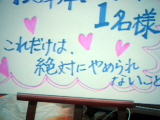 1名様
これだけは、
絶対にやめられ
ないこと